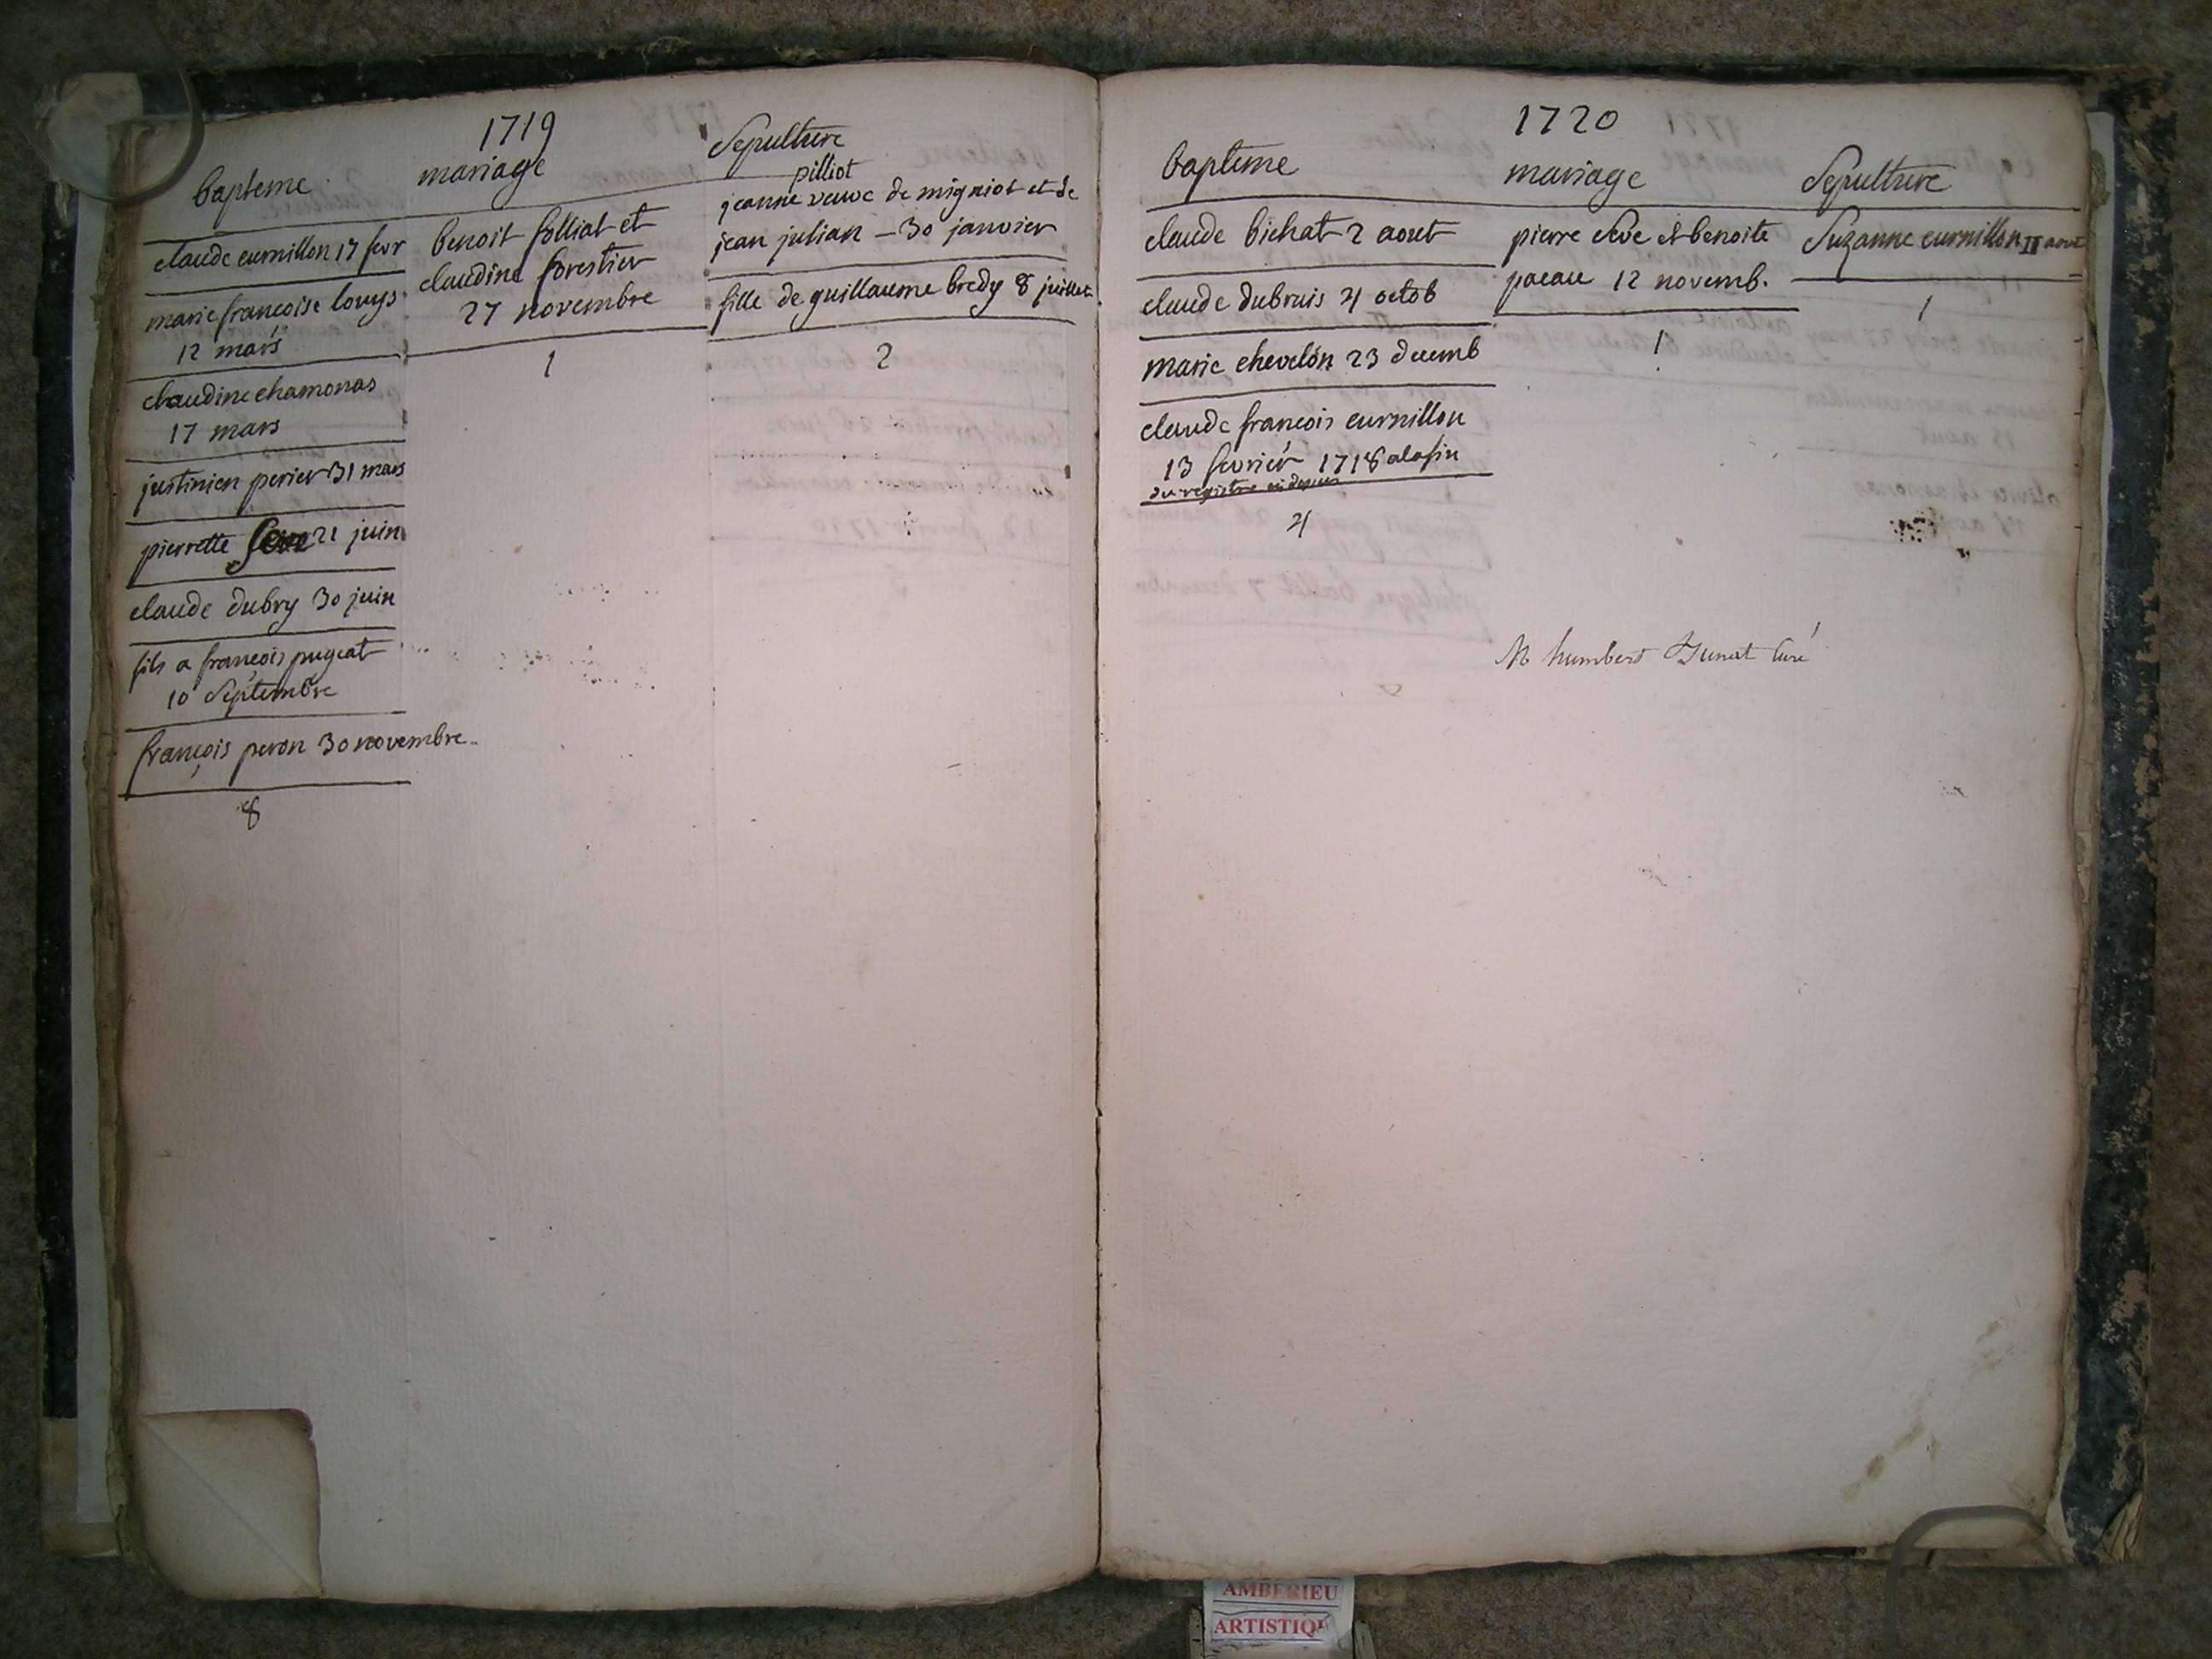 1719
bapteme
claude curnillon 17 fevr
marie francoise louys
12 mars
claudine chamonas
17 mars
justinien perier 31 mars
pierrette Seve 21 juin
claude dubry 30 juin
fils a françois pugeat
10 Septembre
françois peron 30 novembre
8
mariage
benoit folliat et
claudine forestier
27 novembre
1
Sepulture
pilliot
jeanne veuve de migniot et de
jean julian – 30 janvier
fille de guillaume bredy 8 juillet
2
1720
bapteme
claude bichat 2 aout
claude dubruis 4 octob
marie chevelon 23 decemb
claude francois curnillon
13 fevrier 1718 a la fin
du registre
4
mariage
pierre Seve et benoite
pacau 12 novemb.
1
Sepulture
Suzanne curnillon II aout
1
humbert curé
AMBERIEU
ARTISTIQ